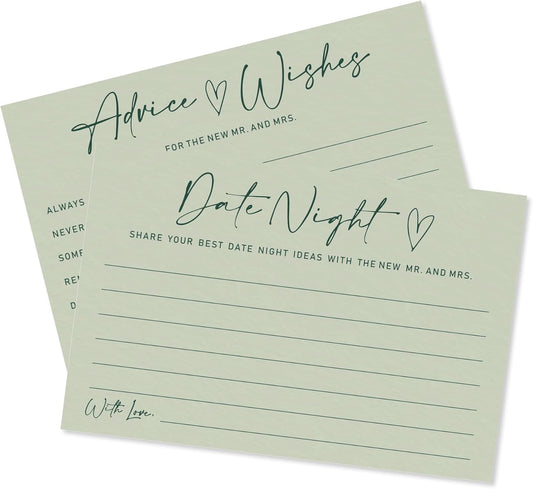 Advice Wishes
FOR THE NEW MR. AND MRS.
ALWAYS
NEVER
Date Night
SHARE YOUR BEST DATE NIGHT IDEAS WITH THE NEW MR. AND MRS.
With Love,